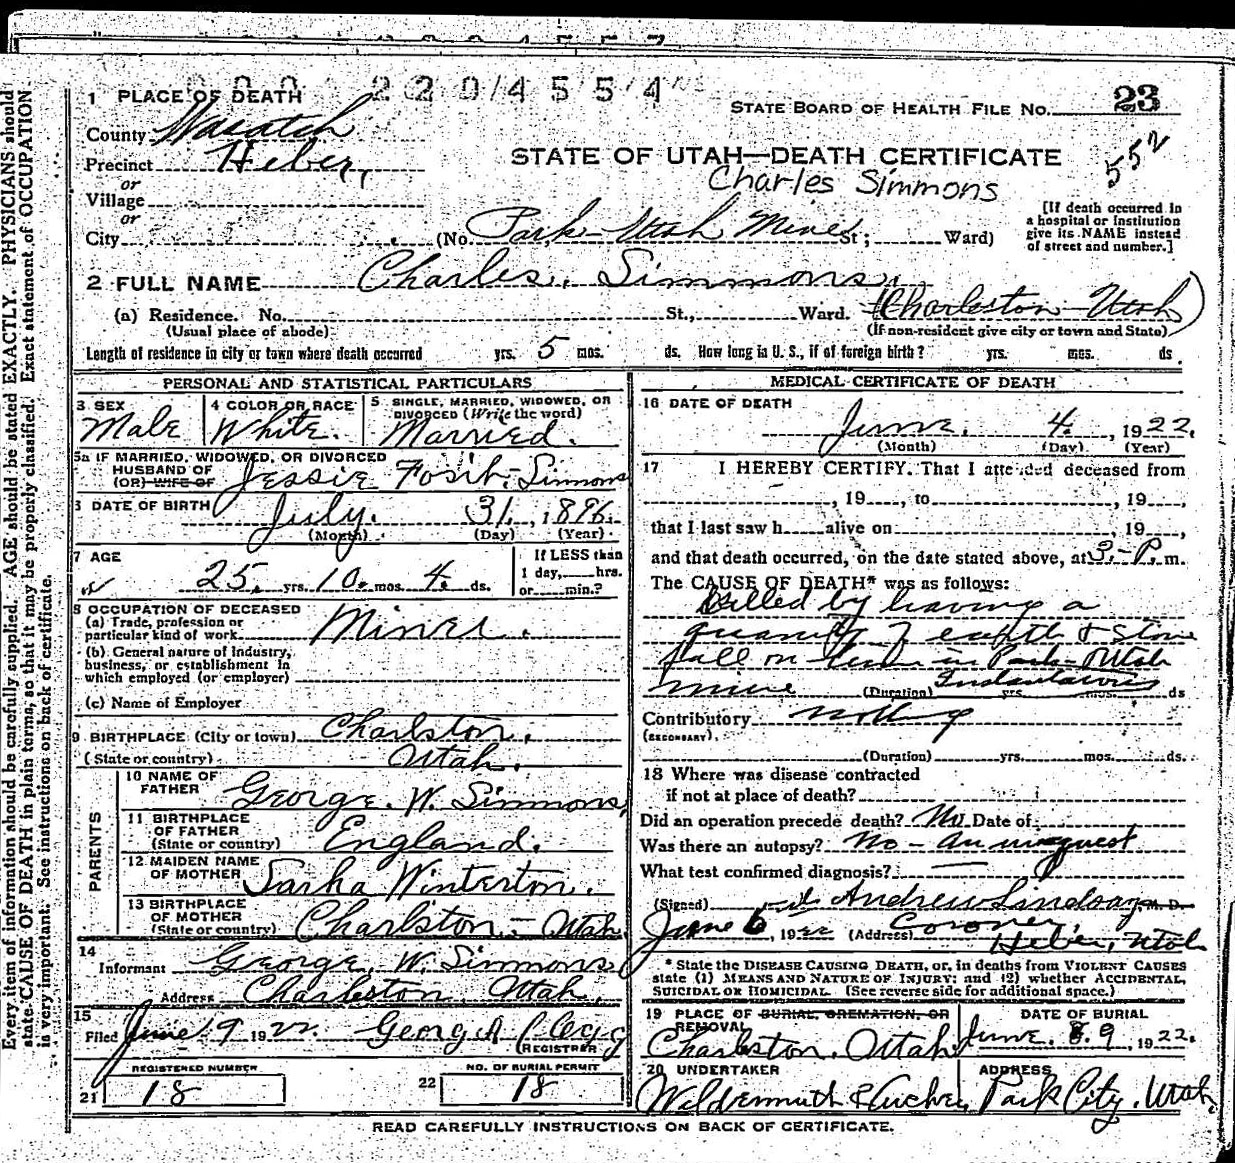 220/4554
1 PLACE OF DEATH
STATE BOARD OF HEALTH FILE NO. 23
County Wasatch
552
Precinct Heber,
STATE OF UTAH—DEATH CERTIFICATE
or
Charles Simmons
Village
or
City (No. Park-Utah Mines St; Ward)
[If death occurred in
a hospital or institution
give its NAME instead
of street and number.]
2 FULL NAME Charles. Simmons.
(a) Residence. No. St., Ward. (Charleston-Utah)
(Usual place of abode) (If non-resident give city or town and State)
Length of residence in city or town where death occurred yrs. 5 mos. ds. How long in U. S., if of foreign birth? yrs. mos. ds.
PERSONAL AND STATISTICAL PARTICULARS
3 SEX Male
4 COLOR OR RACE White.
5 SINGLE, MARRIED, WIDOWED, OR
DIVORCED (Write the word)
Married.
5a IF MARRIED, WIDOWED, OR DIVORCED
HUSBAND OF
(OR) WIFE OF Jessie Simmons
6 DATE OF BIRTH July. 31., 1896.
(Month) (Day) (Year)
7 AGE
25. yrs. 10. mos. 4. ds.
If LESS than
1 day, hrs.
or min.?
8 OCCUPATION OF DECEASED
(a) Trade, profession or
particular kind of work Miner.
(b) General nature of industry,
business, or establishment in
which employed (or employer)
(c) Name of Employer
9 BIRTHPLACE (City or town) Charlston.
(State or country) Utah.
PARENTS
10 NAME OF
FATHER George. W. Simmons,
11 BIRTHPLACE
OF FATHER
(State or country) England.
12 MAIDEN NAME
OF MOTHER Sarha Winterton.
13 BIRTHPLACE
OF MOTHER
(State or country) Charlston.- Utah
14
Informant George. W. Simmons
Address Charleston. Utah.
15
Filed June 19 1922. George A Clegg
(REGISTRER
REGISTERED NUMBER
21 18
NO. OF BURIAL PERMIT
22 18
MEDICAL CERTIFICATE OF DEATH
16 DATE OF DEATH
June. 4., 1922.
(Month) (Day) (Year)
17 I HEREBY CERTIFY. That I attended deceased from
, 19, to , 19,
that I last saw h alive on , 19
and that death occurred, on the date stated above, at 3.-P.m.
The CAUSE OF DEATH* was as follows:
Killed by having a
quanity of earth & Stone
fall on him in Park-Utah
mine (Duration) Instantanous yrs. mos. ds
Contributory nothing
(SECONDARY)
(Duration) yrs. mos. ds.
18 Where was disease contracted
if not at place of death?
Did an operation precede death? No Date of
Was there an autopsy? No - An inquest
What test confirmed diagnosis?
(Signed) Andrew Lindsay, M. D.
June 6, 1922 (Address) Coroner
Heber, Utah
* State the DISEASE CAUSING DEATH, or, in deaths from VIOLENT CAUSES
state (1) MEANS AND NATURE OF INJURY; and (2) whether ACCIDENTAL,
SUICIDAL OR HOMICIDAL. (See reverse side for additional space.)
19 PLACE OF BURIAL, CREMATION, OR
REMOVAL
Charlston. Utah
DATE OF BURIAL
June. 9, 1922.
20 UNDERTAKER
ADDRESS
Park City. Utah.
READ CAREFULLY INSTRUCTIONS ON BACK OF CERTIFICATE.
Every item of information should be carefully supplied. AGE should be stated EXACTLY. PHYSICIANS should
state CAUSE OF DEATH in plain terms, so that it may be properly classified. Exact statement of OCCUPATION
is very important. See instructions on back of certificate.